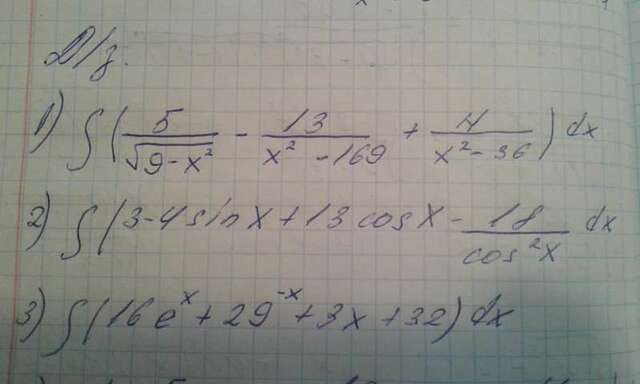 Д/з.
1) ∫(5/√(9-x²) - 13/(x²-169) + 4/(x²-36)) dx
2) ∫(3-4sinx+13cosx-18/cos²x dx
3) ∫(16e^x+29^-x+3x+32)dx